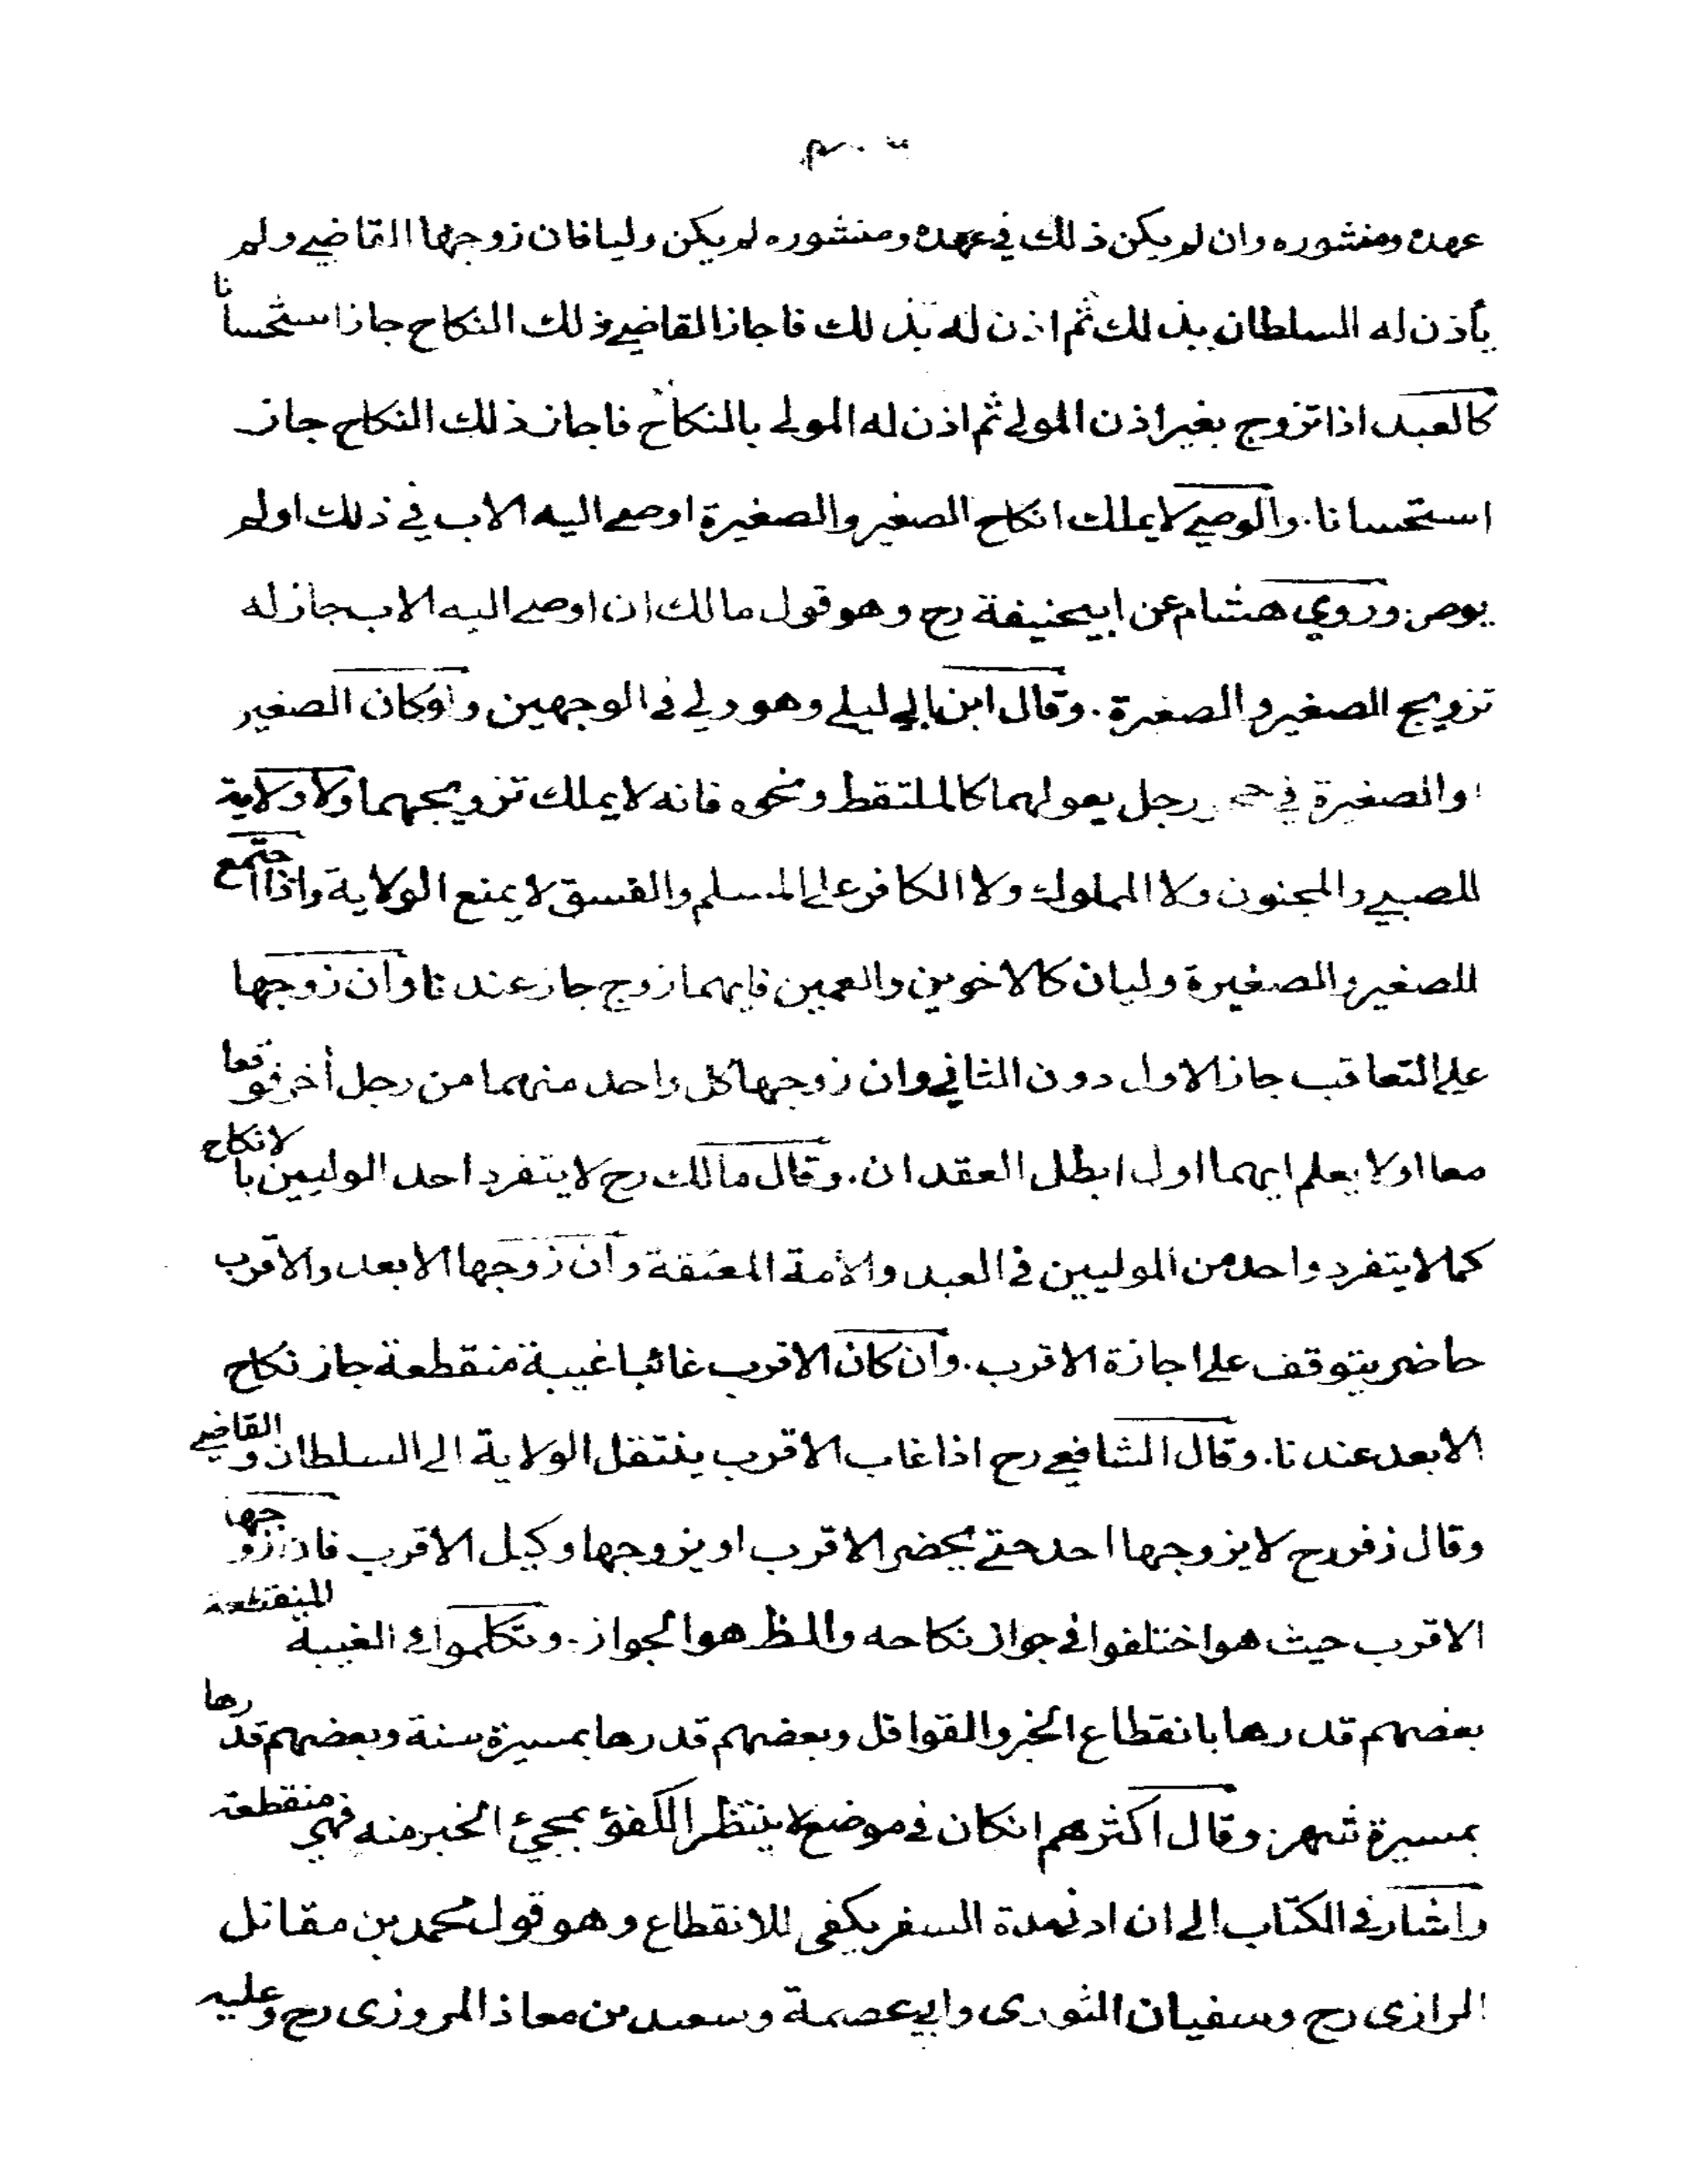 عهده ومنشوره وان لم يكن ذلك في عهده ومنشوره لم يكن وليا فان زوجها القاضي ولم
يأذن له السلطان بذلك ثم اذن له بذلك فاجاز القاضي ذلك النكاح جاز استحسانا
كالعبد اذا تزوج بغير اذن المولي ثم اذن له المولي بالنكاح فاجاز ذلك النكاح جاز
استحسانا. والوصي لا يملك انكاح الصغير والصغيرة اوصي اليه الاب في ذلك اولم
يوص. وروي هشام عن ابيحنيفة رح وهو قول مالك ان اوصي اليه الاب جاز له
تزويج الصغير والصغيرة. وقال ابن ابي ليلي وهو ولي في الوجهين ولوكان الصغير
والصغيرة في رجل يعولهما كالملتقط ونحوه فانه لا يملك تزويجهما ولا ولاية
للصبي والمجنون ولا المملوك ولا الكافر علي المسلم والفسق لا يمنع الولاية واذا اجتمع
للصغير والصغيرة وليان كالاخوين والعمين فايهما زوج جاز عندنا وان زوجها
علي التعاقب جاز الاول دون الثاني وان زوجها كل واحد منهما من رجل أخر فوقعا
معا اولا يعلم ايهما اول ابطل العقدان. وقال مالك رح لا يتفرد احد الوليين بالانكاح
كما لا يتفرد واحد من الموليين في العبد والأمة المعتقة وان زوجها الابعد والاقرب
حاضر يتوقف علي اجازة الاقرب. وان كان الاقرب غائبا غيبة منقطعة جاز نكاح
الابعد عندنا. وقال الشافعي رح اذا غاب الاقرب ينتقل الولاية الي السلطان والقاضي
وقال زفر رح لا يزوجها احد حتي يحضر الاقرب او يزوجها وكيل الاقرب فان زوجها
الاقرب حيث هو اختلفوا في جواز نكاحه والظ هو الجواز. وتكلموا في الغيبة المنقطعة
بعضهم قدرها بانقطاع الخبر والقوافل وبعضهم قدرها بمسيرة سنة وبعضهم قدرها
بمسيرة شهر. وقال اكثرهم انكان في موضع لا ينتظر الكفؤ بمجيئ الخبر منه فهي منقطعة
واشار في الكتاب الي ان ادني مدة السفر يكفي للانقطاع وهو قول محمد بن مقاتل
الرازي رح وسفيان الثوري وابي عصمة وسعد بن معاذ المروزي رح وعليه